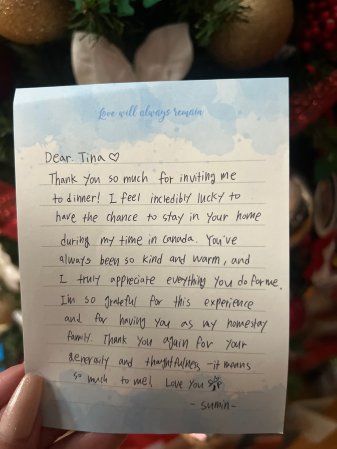 Love will always remain
Dear. Tina ♡
Thank you so much for inviting me
to dinner! I feel incredibly lucky to
have the chance to stay in your home
during my time in Canada. You've
always been so kind and warm, and
I truly appreciate everything you do for me.
I'm so grateful for this experience
and for having you as my homestay
family. Thank you again for your
generosity and thoughtfulness — it means
so much to me! Love you
- sumin -